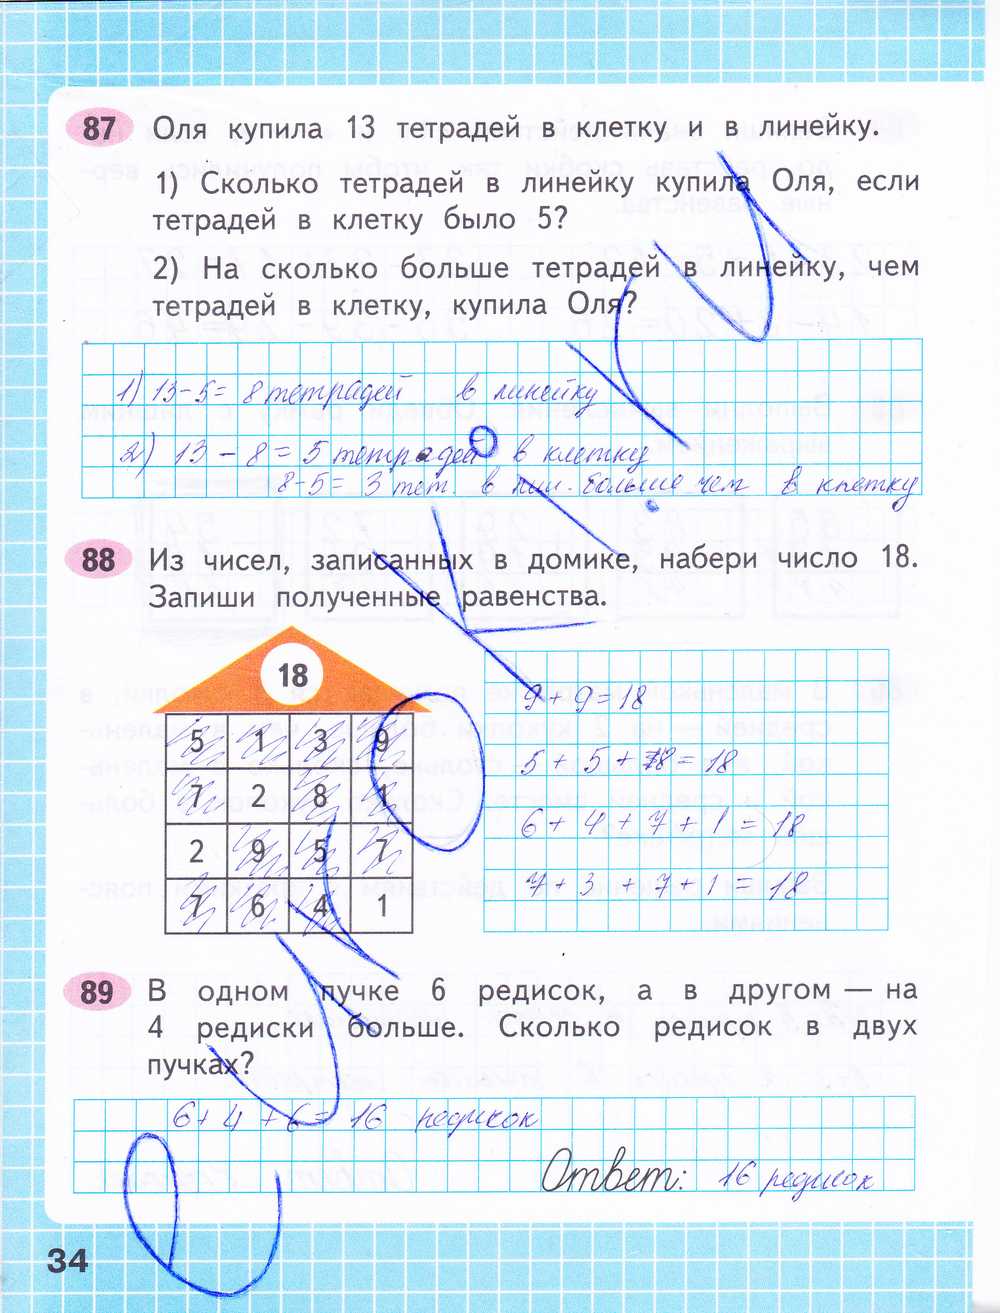 87 Оля купила 13 тетрадей в клетку и в линейку.
1) Сколько тетрадей в линейку купила Оля, если
тетрадей в клетку было 5?
2) На сколько больше тетрадей в линейку, чем
тетрадей в клетку, купила Оля?
1) 13-5= 8 тетрадей в линейку
2) 13 - 8 = 5 тетрадей в клетку
8-5= 3 тет. в лин. больше чем в клетку
88 Из чисел, записанных в домике, набери число 18.
Запиши полученные равенства.
18
5 1 3 9
7 2 8 1
2 9 5 7
7 6 4 1
9 + 9 = 18
5 + 5 + 8 = 18
6 + 4 + 7 + 1 = 18
7 + 3 + 7 + 1 = 18
89 В одном пучке 6 редисок, а в другом — на
4 редиски больше. Сколько редисок в двух
пучках?
6+ 4 + 6 = 16 редисок
Ответ: 16 редисок
34